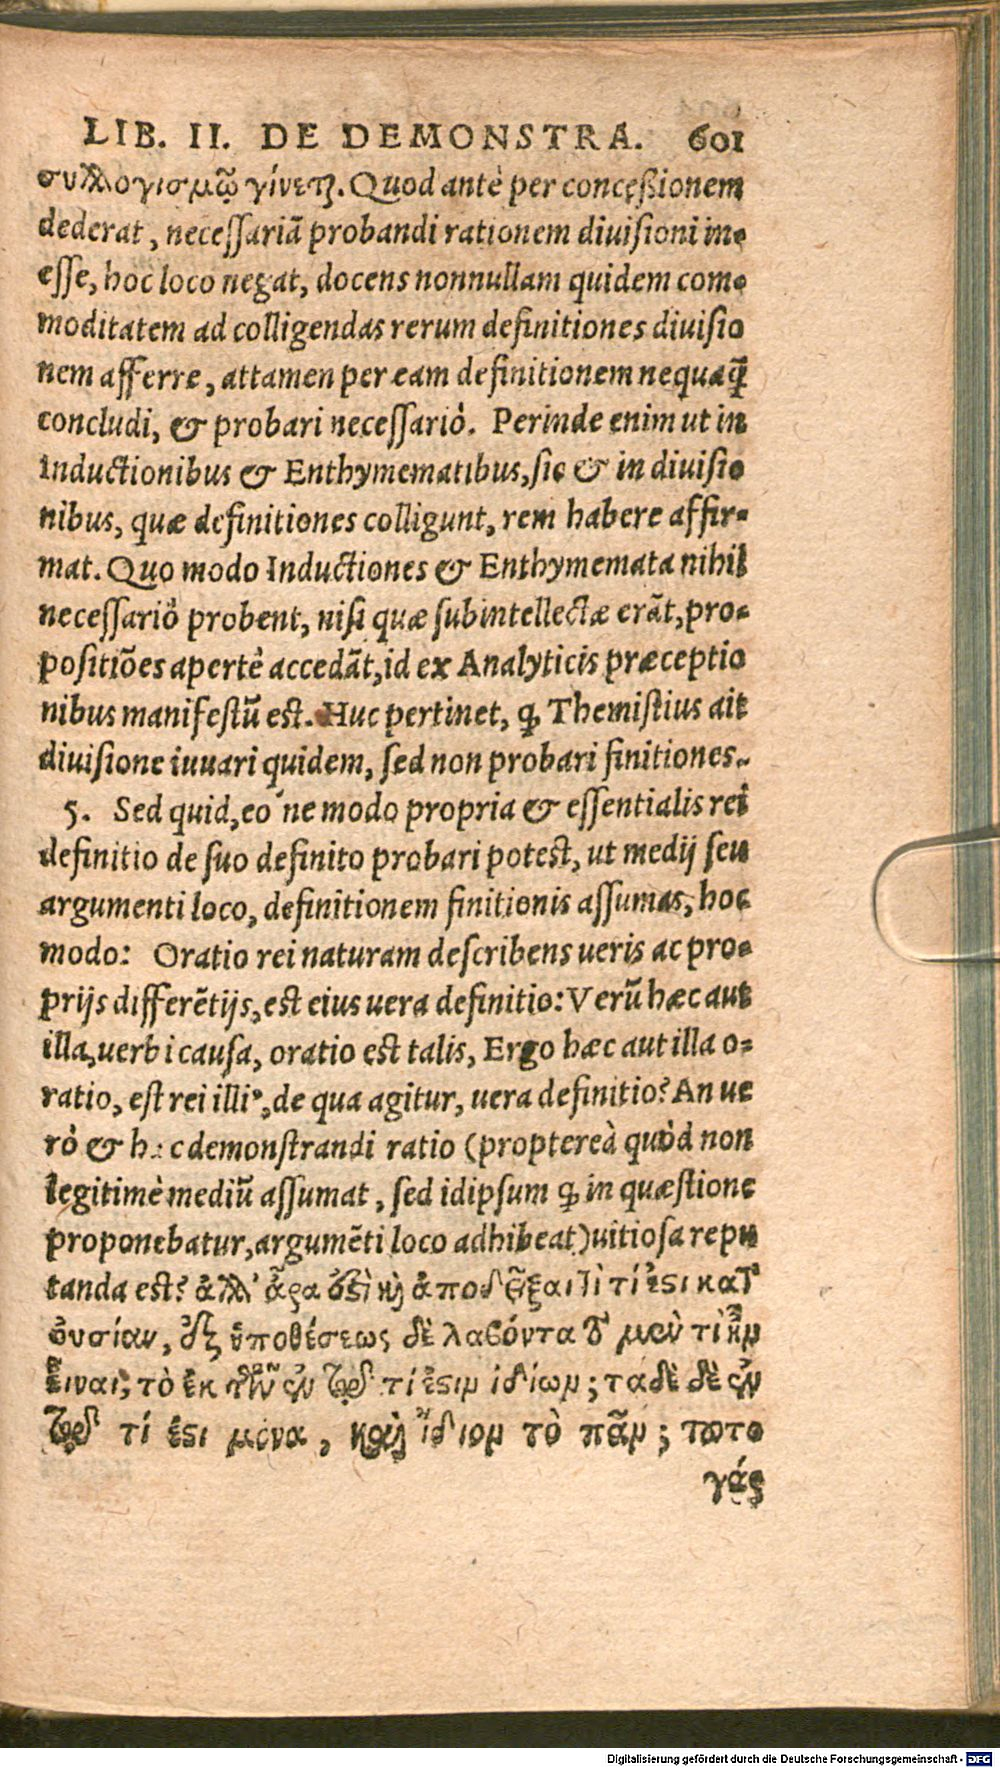 LIB. II. DE DEMONSTRA. 601
συλλογισμῷ γίνεται. Quod antè per conceßionem
dederat, necessariā probandi rationem diuisioni in-
esse, hoc loco negat, docens nonnullam quidem com-
moditatem ad colligendas rerum definitiones diuisio
nem afferre, attamen per eam definitionem nequaq̃
concludi, & probari necessariò. Perinde enim ut in
Inductionibus & Enthymematibus, sic & in diuisio
nibus, quæ definitiones colligunt, rem habere affir-
mat. Quo modo Inductiones & Enthymemata nihil
necessariò probent, nisi quæ subintellectæ erāt, pro-
positiōes apertè accedāt, id ex Analyticis præceptio
nibus manifestū est. Huc pertinet, ꝙ Themistius ait
diuisione iuuari quidem, sed non probari finitiones.
5. Sed quid, eo'ne modo propria & essentialis rei
definitio de suo definito probari potest, ut medij seu
argumenti loco, definitionem finitionis assumas, hoc
modo: Oratio rei naturam describens ueris ac pro-
prijs differētijs, est eius uera definitio: Verū hæc aut
illa, uerbi causa, oratio est talis, Ergo hæc aut illa o-
ratio, est rei illiꝰ, de qua agitur, uera definitio? An ue
rò & hæc demonstrandi ratio (propterea quòd non
legitimè mediū assumat, sed idipsum ꝙ in quæstione
proponebatur, argumēti loco adhibeat) uitiosa repu
tanda est? ἀλλ' ἆρα ἔστι καὶ ἀποδεῖξαι τὶ τί ἐστι κατ'
οὐσίαν, ἐξ ὑποθέσεως δὲ λαβόντα τὸ μὲν τί ἦν
εἶναι; τὸ ἐκ τῶν ἐν τῷ τί ἐστιν ἰδίων; ταδὶ δὲ ἐν
τῷ τί ἐστι μόνα, καὶ ἴδιον τὸ πᾶν; τοῦτο
γάρ
Digitalisierung gefördert durch die Deutsche Forschungsgemeinschaft - DFG